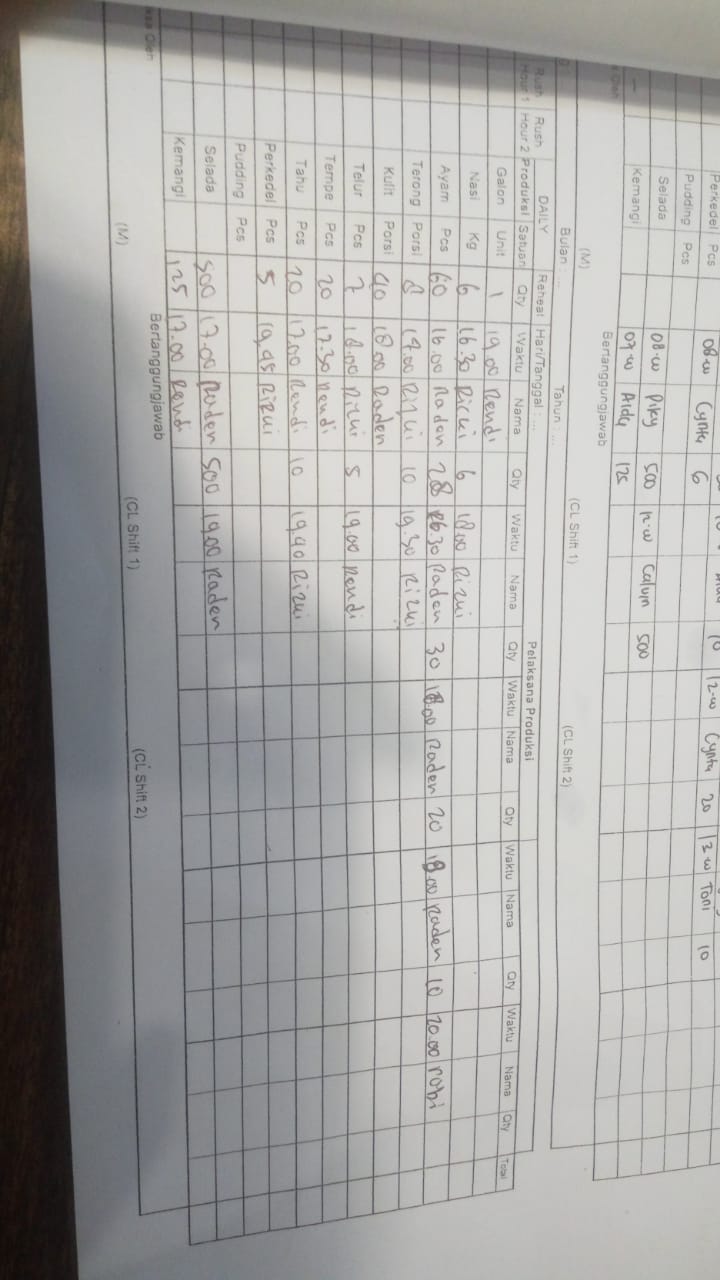 Perkedel Pcs 08-00 Cynta 6 10 12-00 Cynta 20 12-00 Toni 10
Pudding Pcs
Selada 08-00 Piky 500 12-00 Calvin 500
Kemangi 07-00 Aida 125
Bertanggungjawab
(M) (CL Shift 1) (CL Shift 2)
Bulan : ... Tahun : ...
DAILY Hari/Tanggal : ... Pelaksana Produksi
Rush Hour 1 Rush Hour 2 Produksi Satuan Reheat Qty Waktu Nama Qty Waktu Nama Qty Waktu Nama Qty Waktu Nama Qty Waktu Nama Qty Total
Galon Unit 1 19.00 Rendi
Nasi Kg 6 16.30 Rizki 6 18.00 Rizki
Ayam Pcs 60 16.00 Raden 28 16.30 Raden 30 18.00 Raden 20 18.00 Raden 10 20.00 robi
Terong Porsi 8 17.00 Rizki 10 19.30 Rizki
Kulit Porsi 40 18.00 Raden
Telur Pcs 7 18.00 Rizki 5 19.00 Rendi
Tempe Pcs 20 17.30 Rendi
Tahu Pcs 20 17.00 Rendi 10 19.40 Rizki
Perkedel Pcs 5 19.45 Rizki
Pudding Pcs
Selada 500 17.00 Raden 500 19.00 Raden
Kemangi 125 17.00 Rendi
Bertanggungjawab
(M) (CL Shift 1) (CL Shift 2)